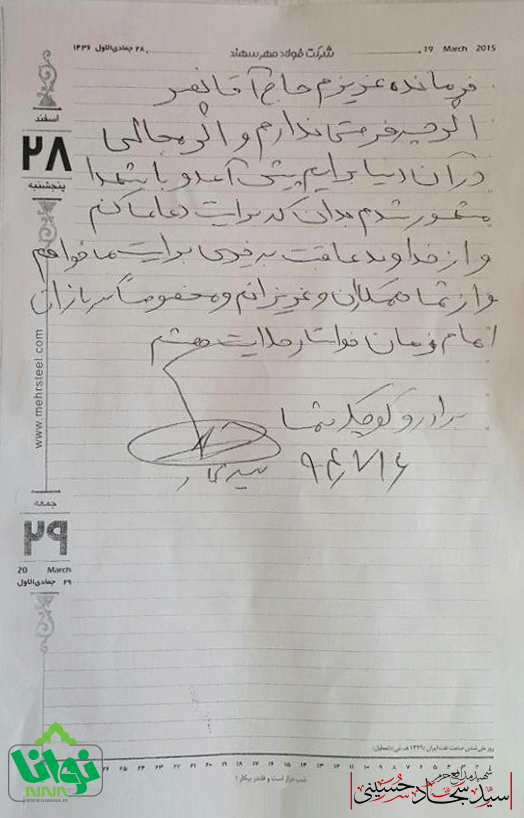 ۲۸ جمادی‌الاول ۱۴۳۶
شرکت فولاد مهر سهند
19 March 2015
اسفند
۲۸
پنجشنبه
فرمانده عزیزم حاج آقا نصر
اگرچه فرصتی ندارم و اگر مجالی
در آن دنیا برایم پیش آمد و با شهدا
محشور شدم بدان که برایت دعا می‌کنم
و از خداوند عاقبت بخیری برای شما خواهم
و از شما و همکاران و عزیزانم و مخصوصاً سربازان
امام زمان خواستار حلالیت هستم
برادر کوچک شما
۹۴/۷/۱۶
سید سجاد
www.mehrsteel.com
جمعه
۲۹
20 March
۲۹ جمادی‌الاول
روز ملی شدن صنعت نفت ایران (۱۳۲۹ ه‍.ش) (تعطیل)
شب دراز است و قلندر بیکار !
نوانا
NNNN
شهید مدافع حرم
سید سجاد حسینی